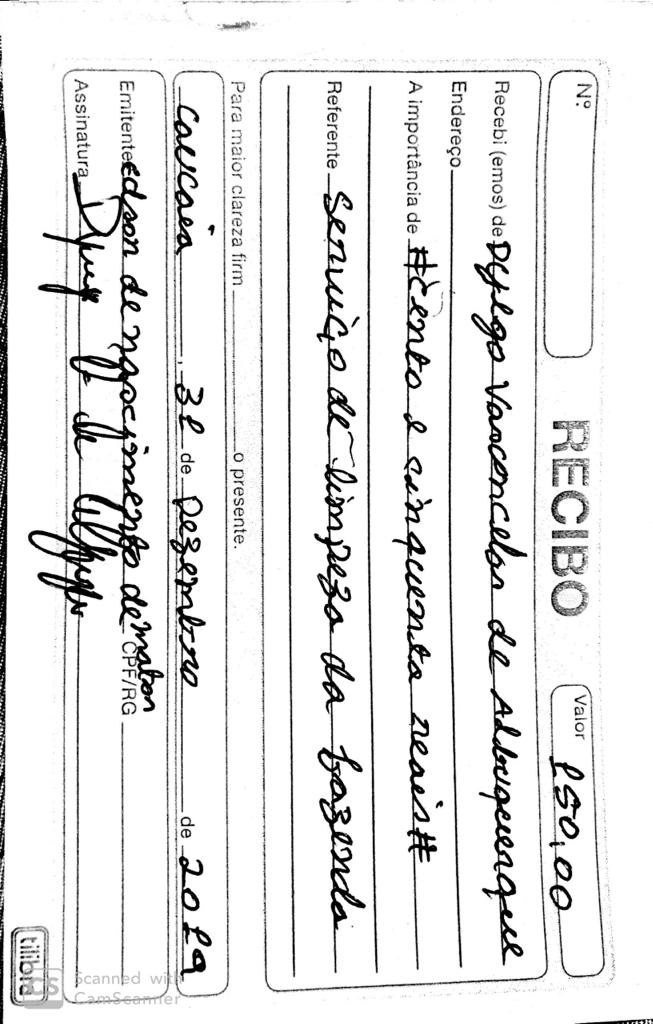 Nº.
RECIBO
Valor 150,00
Recebi (emos) de Dyego Vasconcelos de Albuquerque
Endereço
A importância de #Cento e cinquenta reais#
Referente Serviço de limpeza da fazenda
Para maior clareza firm o presente.
Caucaia, 31 de Dezembro de 2019
Emitente edson de nascimento de maton CPF/RG
Assinatura
tilibra
CS Scanned with
CamScanner